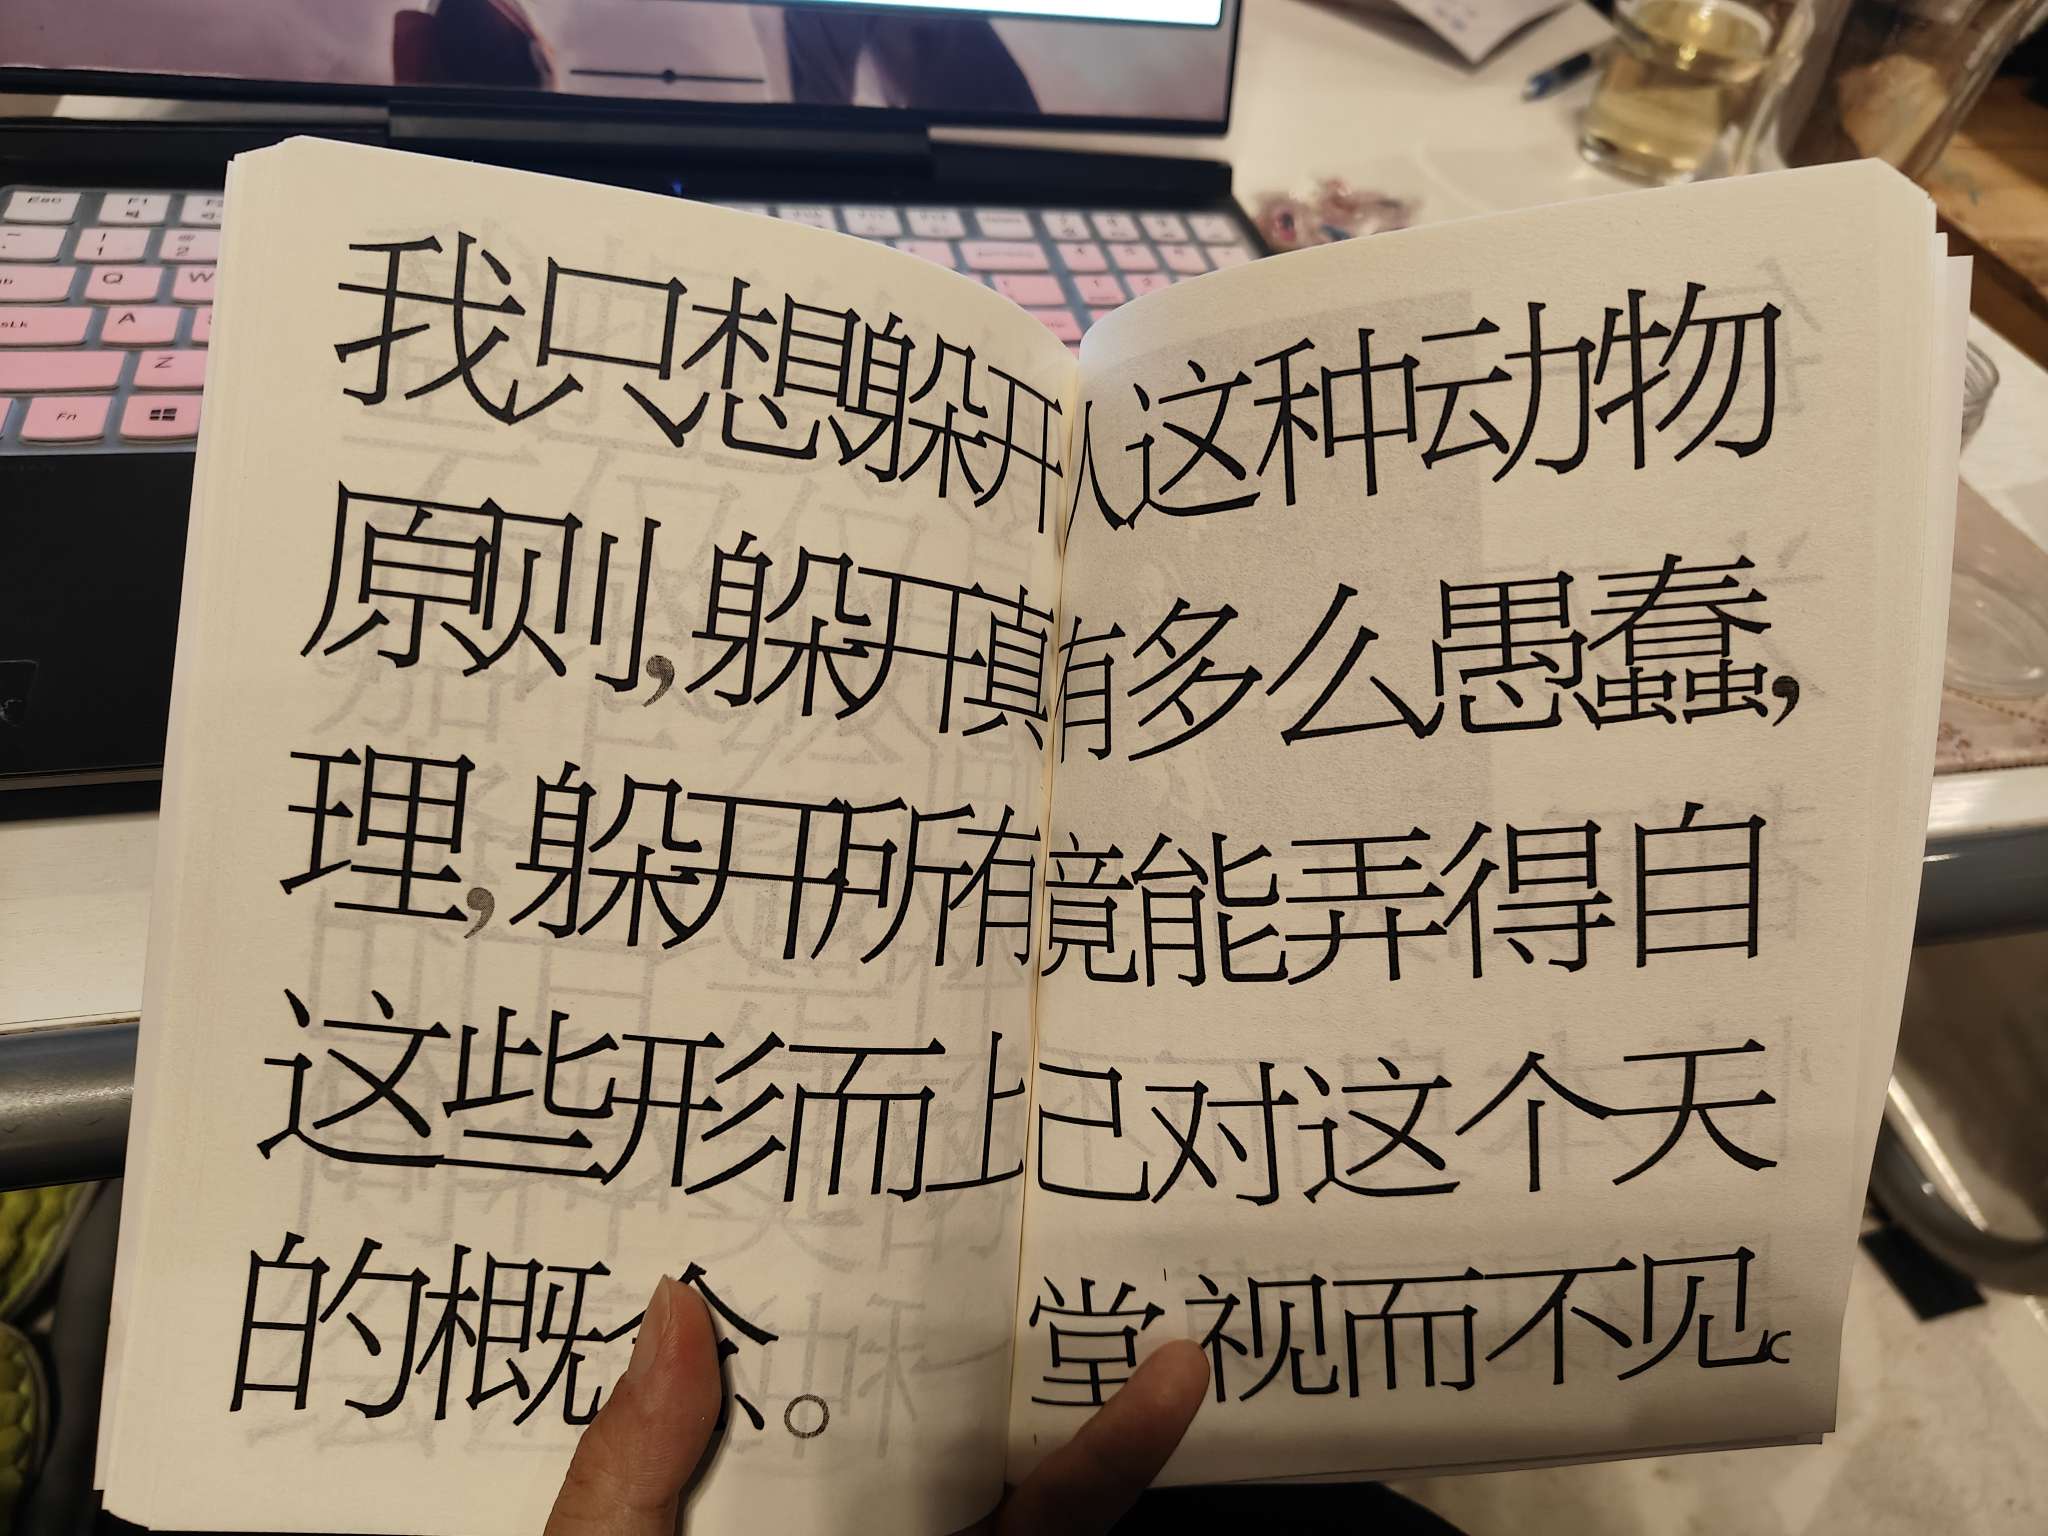 我只想躲开
原则，躲开真
理，躲开所有
这些形而上
的概念。
人这种动物
有多么愚蠢，
竟能弄得自
己对这个天
堂视而不见
Esc
F1
F2
1
2
Q
W
A
Z
Fn